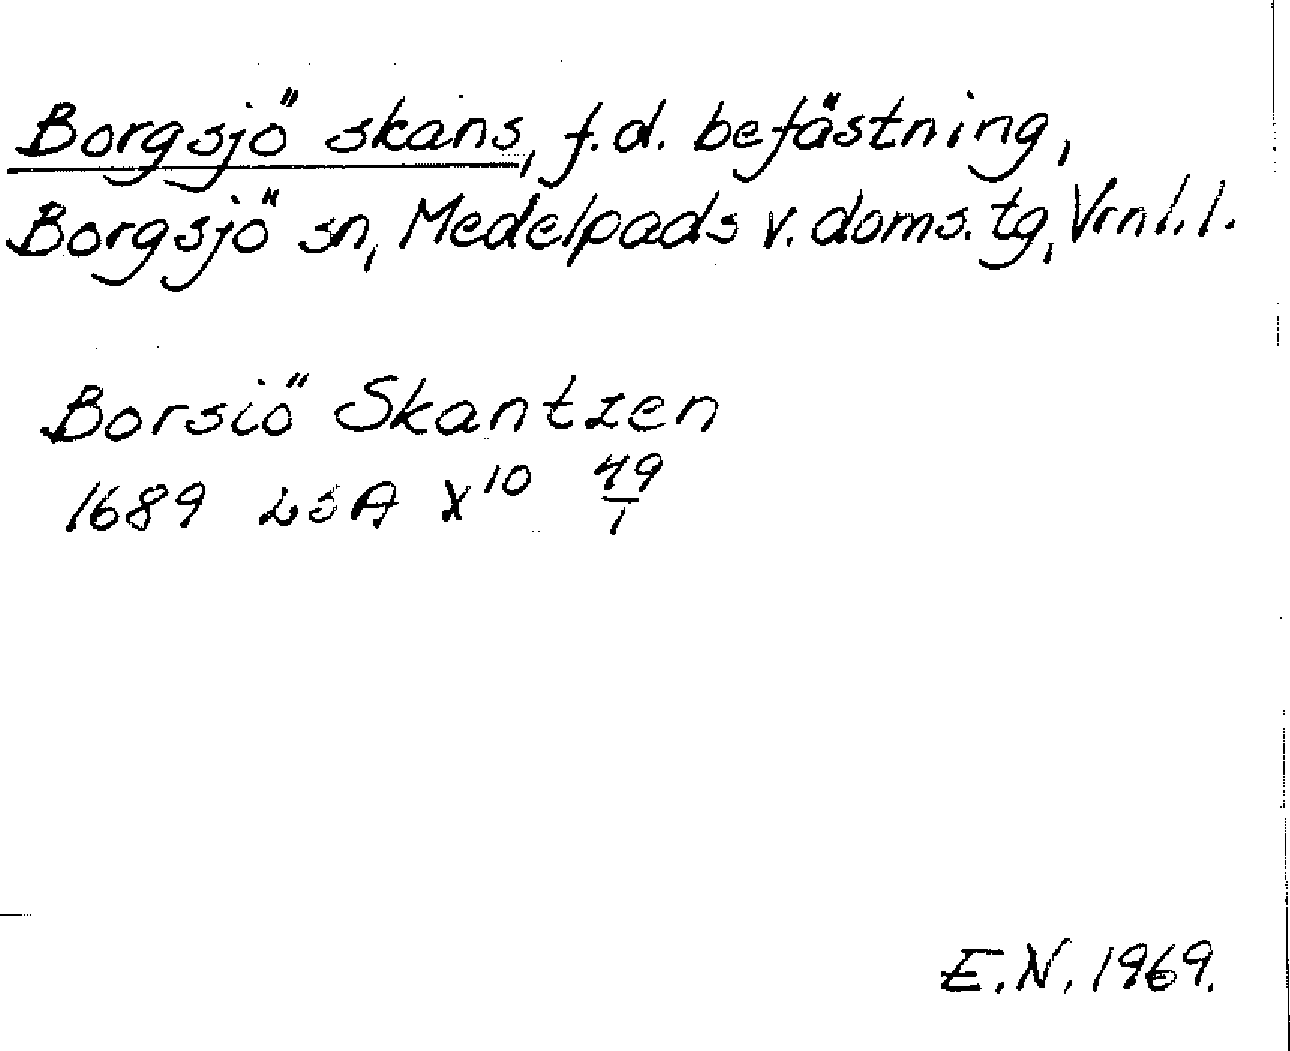 Borgsjö skans, f.d. befästning,
Borgsjö sn, Medelpads v. doms. tg, Vrnl. l.
Borsiö Skantzen
1689 LSA X¹⁰ 49/1
E.N. 1969.